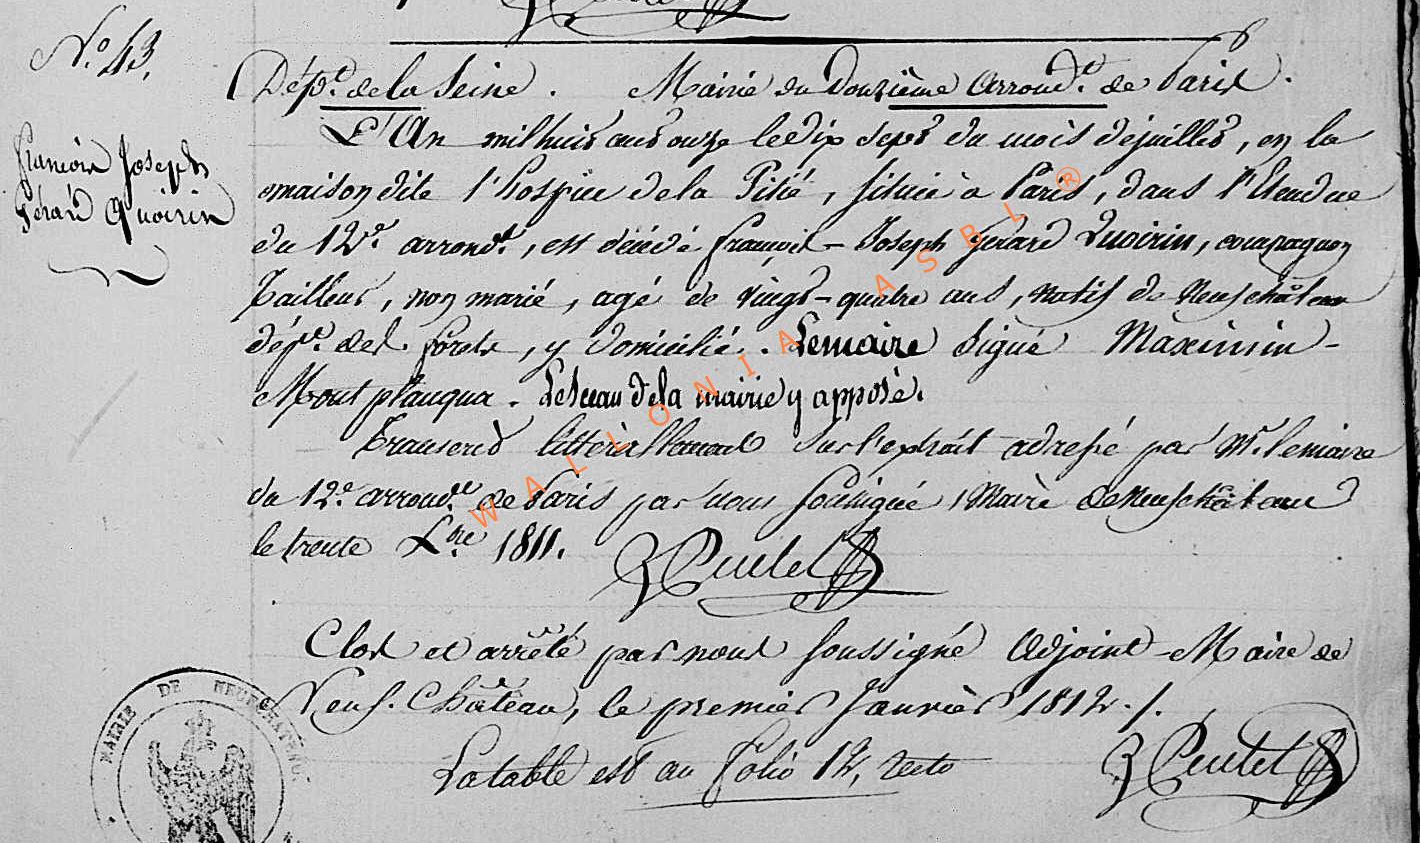 N.º 43.
Dép.t de la Seine. Mairie du Douzième Arrond.t de Paris.
François Joseph
Gérard Quoirin
L'An mil huit cent onze le dix sept du mois de juillet, en la
maison dite l'hospice de la Pitié, située à Paris, dans l'Etendue
du 12.e arrond.t, est décédé françois-Joseph gérard Quoirin, compagnon
Tailleur, non marié, agé de vingt-quatre ans, natif de Neufchâteau
dép.t des forêts, y domicilié. Lemaire Signé Maximin-
Le Sceau de la mairie y apposé.
Transcrit littérallement sur l'extrait adressé par Mr. lemaire
du 12.e arrond.t de Paris par nous soussigné, Maire de Neufchâteau
le trente Xbre 1811.
Clos et arrêté par nous soussigné Adjoint-Maire de
Neuf-Château, le premier Janvier 1812./.
La table est au folio 12, recto
MAIRIE DE NEUFCHATEAU.
WALLONIA ASBL ®